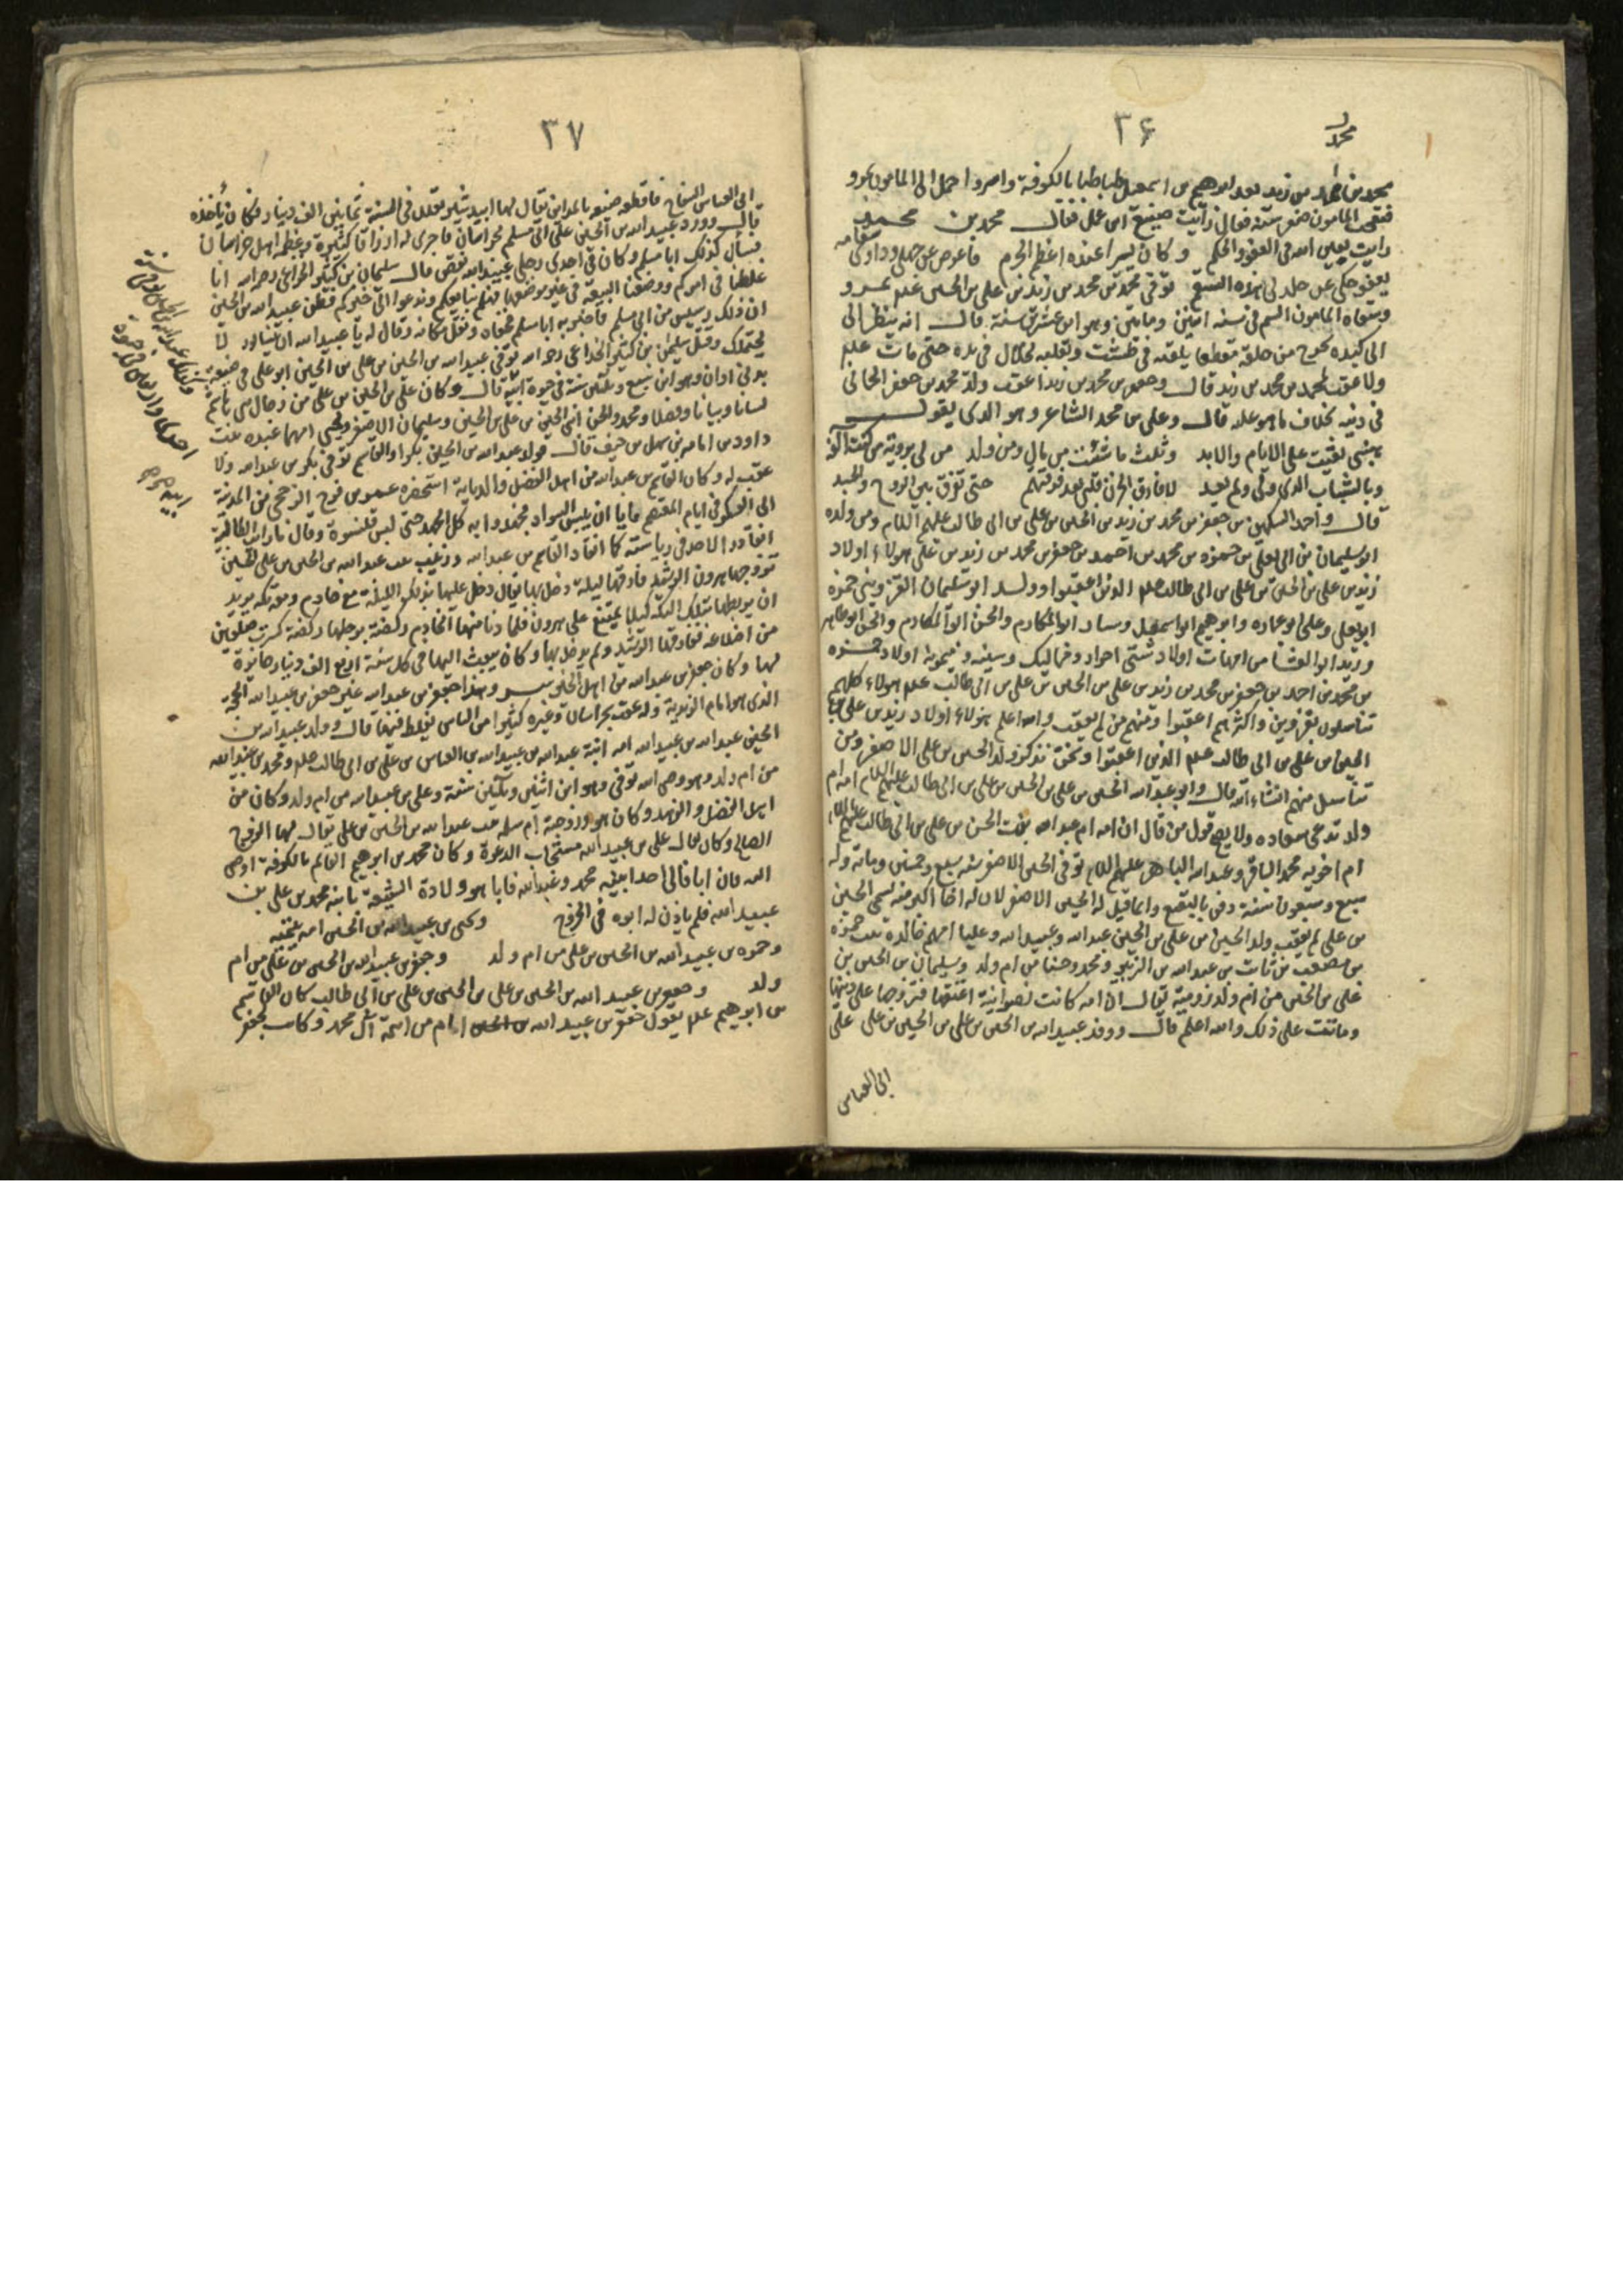 ٣۶
محمد
محمد بن محمد بن زيد بعد ابرهيم بن اسمعيل طباطبا بالكوفة واسروا حمل الى المامون بمرو
فتعجب المامون صغر سنه فقال رأيت صنيع ابن عمك فقال محمد بن محمد
رايت بعين الله فى العفو والحكم وكان يسيرا عنده اعظم الجرم فاعرض عن جهلى وداو سقامه
بعفو جلى عن جلد فى هذه السقم توفى محمد بن محمد بن زيد بن على بن الحسين علم بمرو
وسقاه المامون السم فى سنه اثنين ومايتين وهو ابن عشرين سنة قال انه ينظر الى
الى كبده تخرج من حلقه قطعا يلقيه فى طشت ويقلبه بخلال فى يده حتى مات علم
ولا عقب لمحمد بن محمد بن زيد قال وجعفر بن محمد بن زيد اعقب ولد محمد بن جعفر الحمانى
فى دينه بخلاف ما هو عليه قال وعلى بن محمد الشاعر وهو الذى يقول
هبنى بقيت على الايام والابد ونلت ما شئت من مال ومن ولد من لى برؤية من كنت آلفه
وبالشباب الذى ولى ولم يعد لا فارق الحزن قلبى بعد فرقتهم حتى تفرق بين الروح والجسد
قال واحمد السكين بن جعفر بن محمد بن زيد بن الحسين بن على بن ابى طالب عليهم السلام ومن ولده
ابو سليمان بن ابى يعلى بن حمزه بن محمد بن احمد بن جعفر بن محمد بن زيد بن على هولاء اولاد
زيد بن على بن الحسين بن على بن ابى طالب علم الذين اعقبوا وولد ابو سليمان القزوينى حمزه
ابو يعلى وعلى ابو عباده وابرهيم ابو اسمعيل وسار ابو المكارم والحسن ابو المكارم والحسن ابو طاهر
وزيد ابو العشا من امهات اولاد شتى احرار ومماليك وسينه وميمونة اولاد حمزه
بن محمد بن احمد بن جعفر بن محمد بن زيد بن على بن الحسين بن على بن ابى طالب علم هولاء كلهم
تناسلون بقزوين واكثرهم اعقبوا ومنهم من لم يعقب والله اعلم هولاء اولاد زيد بن على بن
الحسين بن على بن ابى طالب علم الذين اعقبوا ونحن نذكر ولد الحسين بن على الاصغر ومن
تناسل منهم انشاء الله قال وابو عبد الله الحسين بن على بن الحسين بن على بن ابى طالب عليهم السلام امه ام
ولد تدعى سعاده ولا يصح قول من قال ان امه ام عبد الله بنت الحسن بن على بن ابى طالب عليهم السلام
ام اخويه محمد الباقر وعبد الله الباهر عليهم السلام توفى الحسين الاصغر سنه سبع وخمسين ومائة وله
سبع وسبعون سنة دفن بالبقيع وانما قيل له الحسين الاصغر لان له اخا اكبر منه يسمى الحسين
بن على لم يعقب ولد الحسين بن على بن الحسين عبد الله وعبيد الله وعليا امهم خالدة بنت حمزه
بن مصعب بن ثابت بن عبد الله بن الزبير ومحمد وحسنا من ام ولد وسليمان بن الحسين بن
على بن الحسين من ام ولد رومية يقال ان امه كانت نصرانية اعتقها فتزوجها على دينها
وماتت على ذلك والله اعلم قال ووفد عبيد الله بن الحسين بن على بن الحسين بن على على
ابى العباس
٣٧
ابى العباس السفاح فاقطعه ضيعه بالمداين يقال لها البندشير تغل فى السنة ثمانين الف دينار فكان يأخذه
قال وورد عبيد الله بن الحسين على ابى مسلم بخراسان فاجرى له ارزاقا كثيرة وعظمه اهل خراسان
فساء ذلك ابا مسلم وكان فى احدى رجلى عبيد الله نقص قال سليمان بن كثير الخزاعى رحمه الله انا
غلطنا فى امركم ووضعنا البيعه فى غير موضعها فهلم نبايعكم وندعوا الى خيركم فظن عبيد الله بن الحسين
ان ذلك دسيس من ابى مسلم فاخبر به ابا مسلم فجفاه وثقل مكانه وقال له يا عبيد الله ان نيسابور لا
تحتملك وقتل سليمان بن كثير الخزاعى رحمه الله توفى عبيد الله بن الحسين بن على بن الحسين ابو على فى ضيعة
بذى اوان وهو ابن سبع وثلثين سنة فى حيوة ابيه قال وكان على بن الحسين بن على من رجال بنى هاشم
لسانا وبيانا وفضلا ومحمد والحسن ابنى الحسين بن على بن الحسين وسليمان الاصغر ويحيى امهما عبده بنت
داود بن امامه بن سهل بن حنيف قال فولد عبد الله بن الحسين بكرا والقاسم توفى بكر بن عبد الله ولا
عقب له وكان القاسم بن عبد الله من اهل الفضل والرياسة استحضره عمر بن فرج الرخجى من المدينة
الى العسكر فى ايام المعتصم فابا ان يلبس السواد فجهدوا به كل الجهد حتى لبس قلنسوة وقال ما رأت الطالبية
انقادوا لاحد فى رياسته كما انقاد القاسم بن عبد الله وزينب بنت عبد الله بن الحسين بن على بن الحسين
تزوجها هرون الرشيد فارقها ليلة دخل بها يقال دخل عليها بذلك الليلة مع خادم ومعه تكه يريد
ان يربطها بتلك التكه كيلا يمتنع على هرون فلما دنا منها الخادم ركضته برجلها ركضة كسرت ضلعين
من اضلاعه ففارقها الرشيد ولم يدخل بها وكان يبعث اليها فى كل سنة اربع الف دينار جايزة
لها وكان جعفر بن عبد الله من اهل الخير وهذا جعفر بن عبد الله غير جعفر بن عبيد الله الحجة
الذى هو امام الزيدية وله عقب بخراسان وغيره كثيرا من الناس يغلط فيهما قال وولد عبيد الله بن
الحسين عبد الله بن عبيد الله امه ابنة عبد الله بن عبيد الله بن العباس بن على بن ابى طالب علم ومحمد بن عبيد الله
من ام ولد وهو وصى ابيه توفى وهو ابن اثنين وثلثين سنة وعلى بن عبيد الله من ام ولد وكان من
اهل الفضل والزهد وكان هو وزوجته ام سلمه بنت عبد الله بن الحسين بن على يقال لهما الزوج
الصالح وكان يقال على بن عبيد الله مستجاب الدعوة وكان محمد بن ابراهيم القائم بالكوفة اوصى
اليه فان ابا فالى احد ابنيه محمد وعبيد الله فابا هو وولاده البيعة بابنه محمد بن على بن
عبيد الله فلم ياذن له ابوه فى الخروج ويحيى بن عبيد الله بن الحسين امه
وحمزه بن عبيد الله بن الحسين بن على من ام ولد وجعفر بن عبيد الله بن الحسين بن على من ام
ولد وجعفر بن عبيد الله بن الحسين بن على بن الحسين بن على بن ابى طالب كان القاسم
بن ابرهيم علم يقول جعفر بن عبيد الله بن الحسين امام من ائمة آل محمد وكان لجعفر